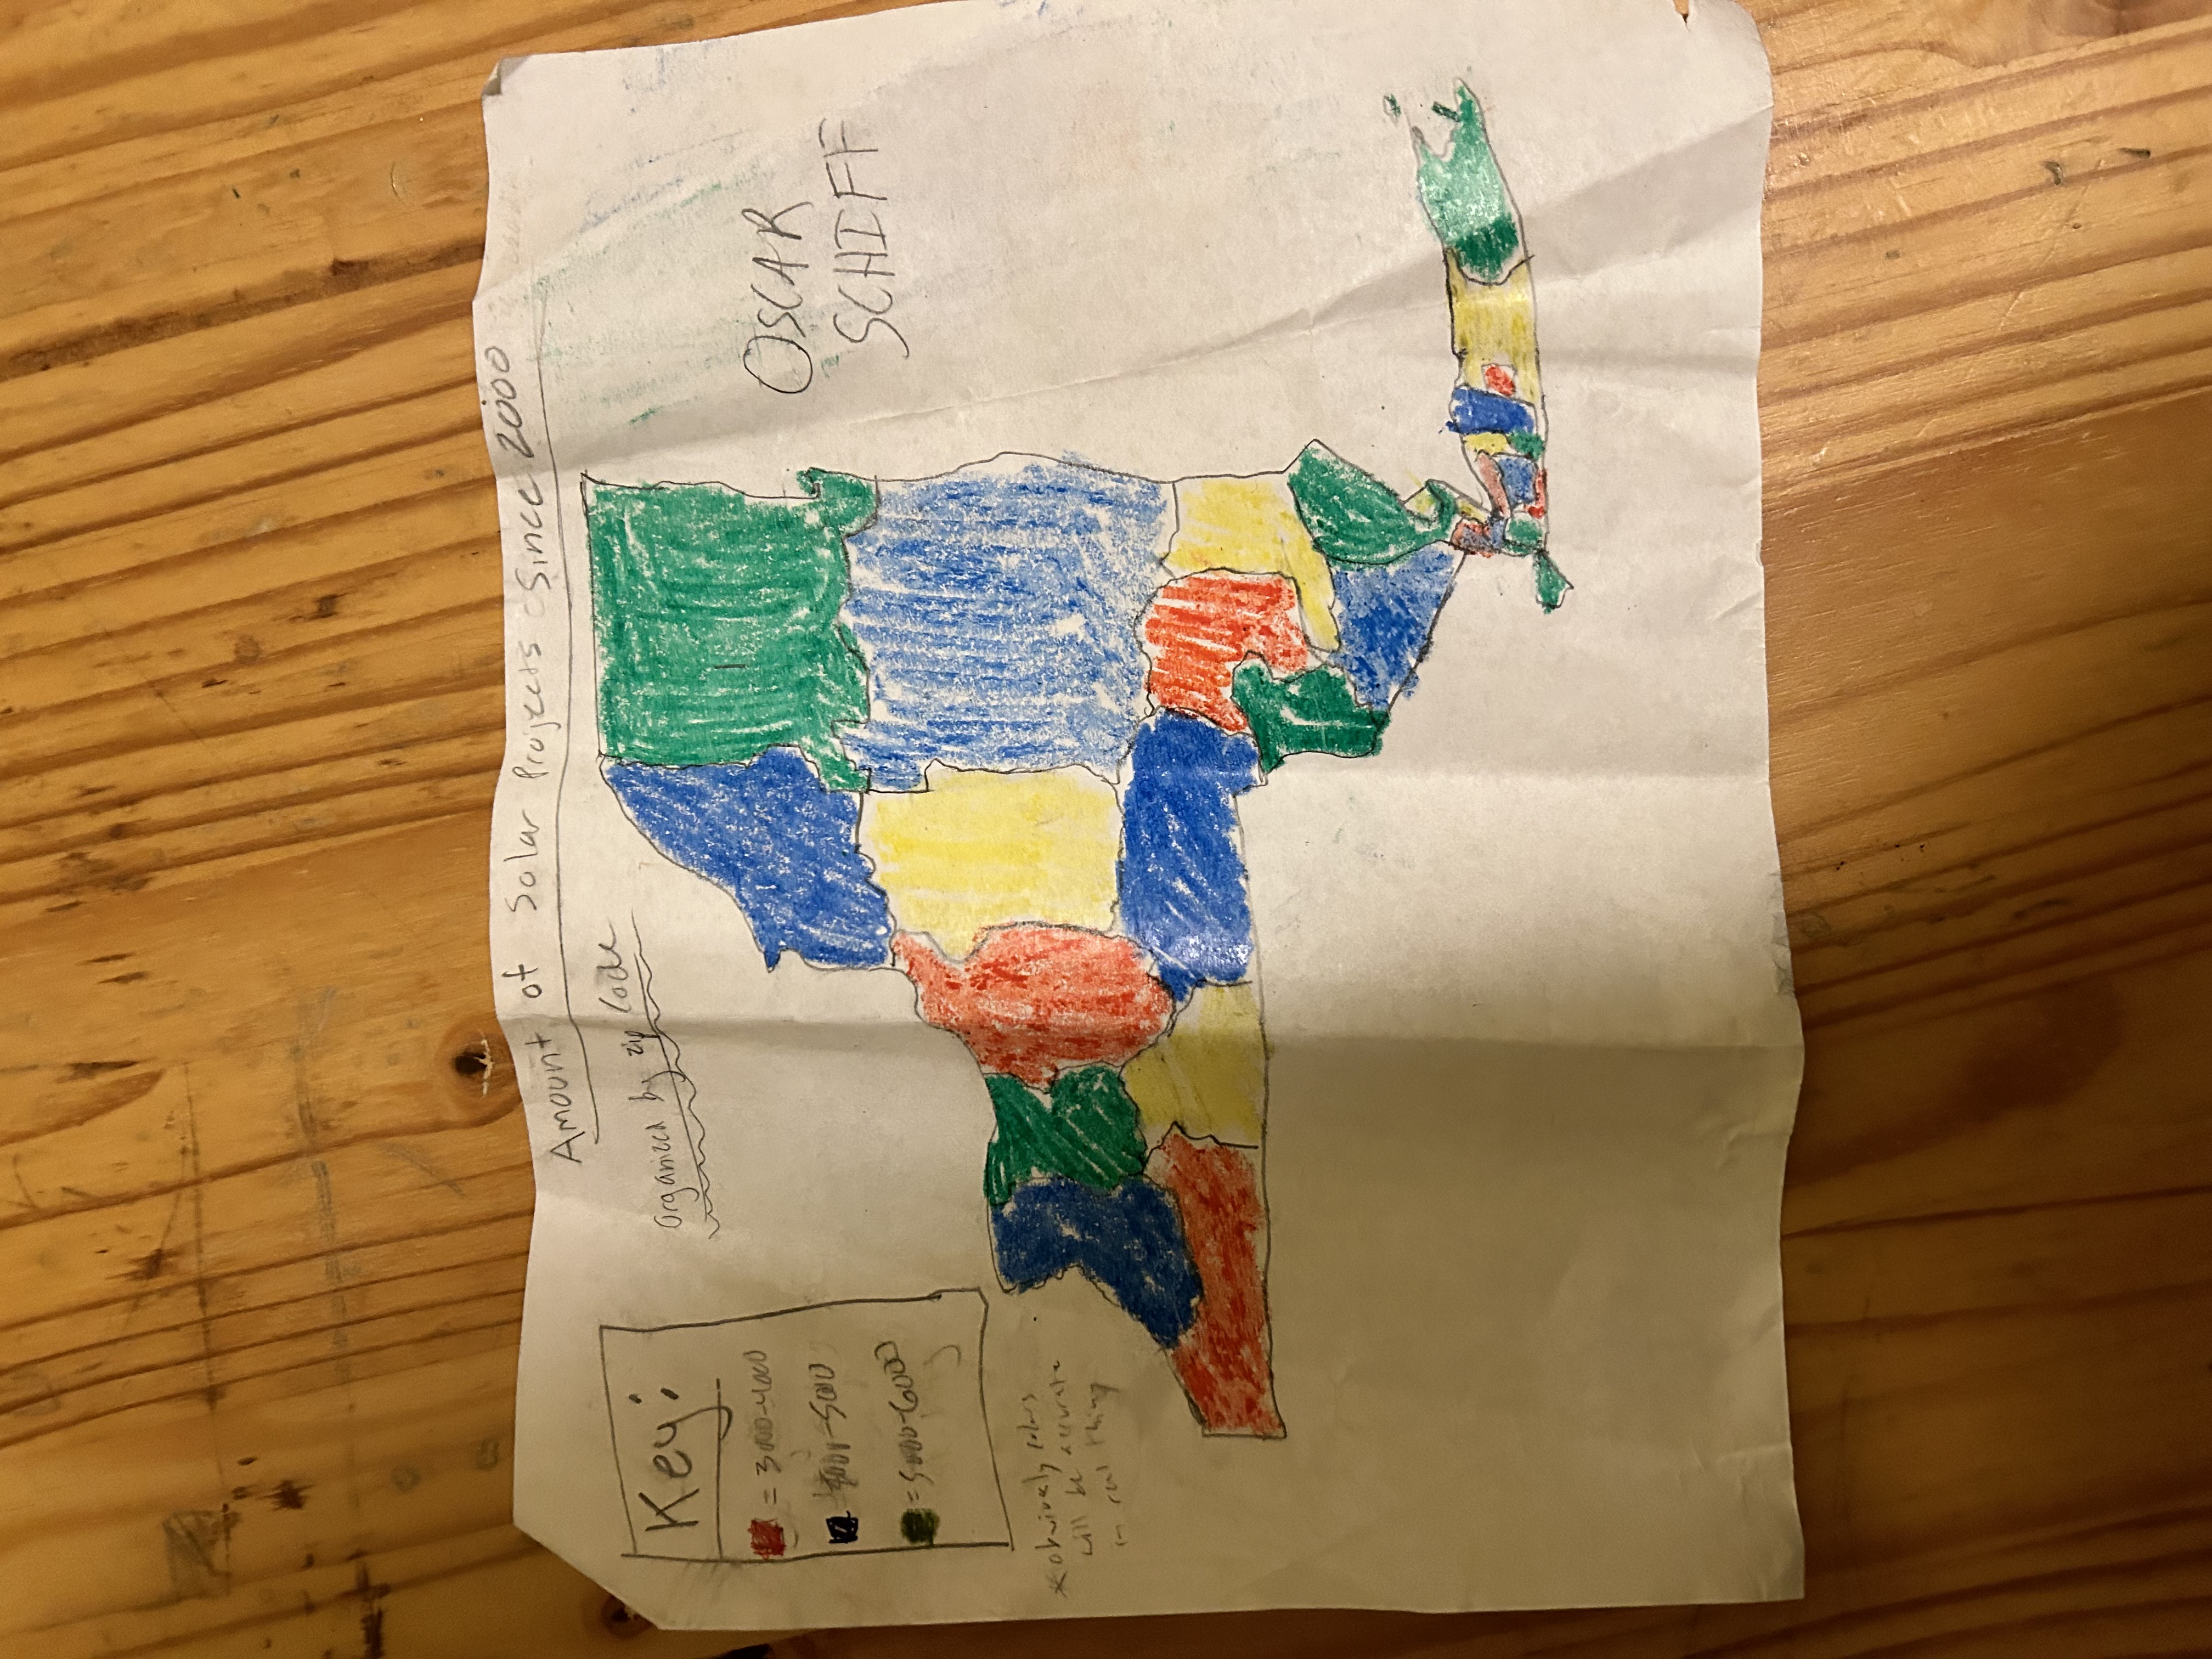 Amount of Solar Projects Since 2000
Organized by zip Code
Key:
= 3000-4000
4001-5000
= 5000-6000
* obviously colors
will be accurate
in real thing
OSCAR
SCHIFF